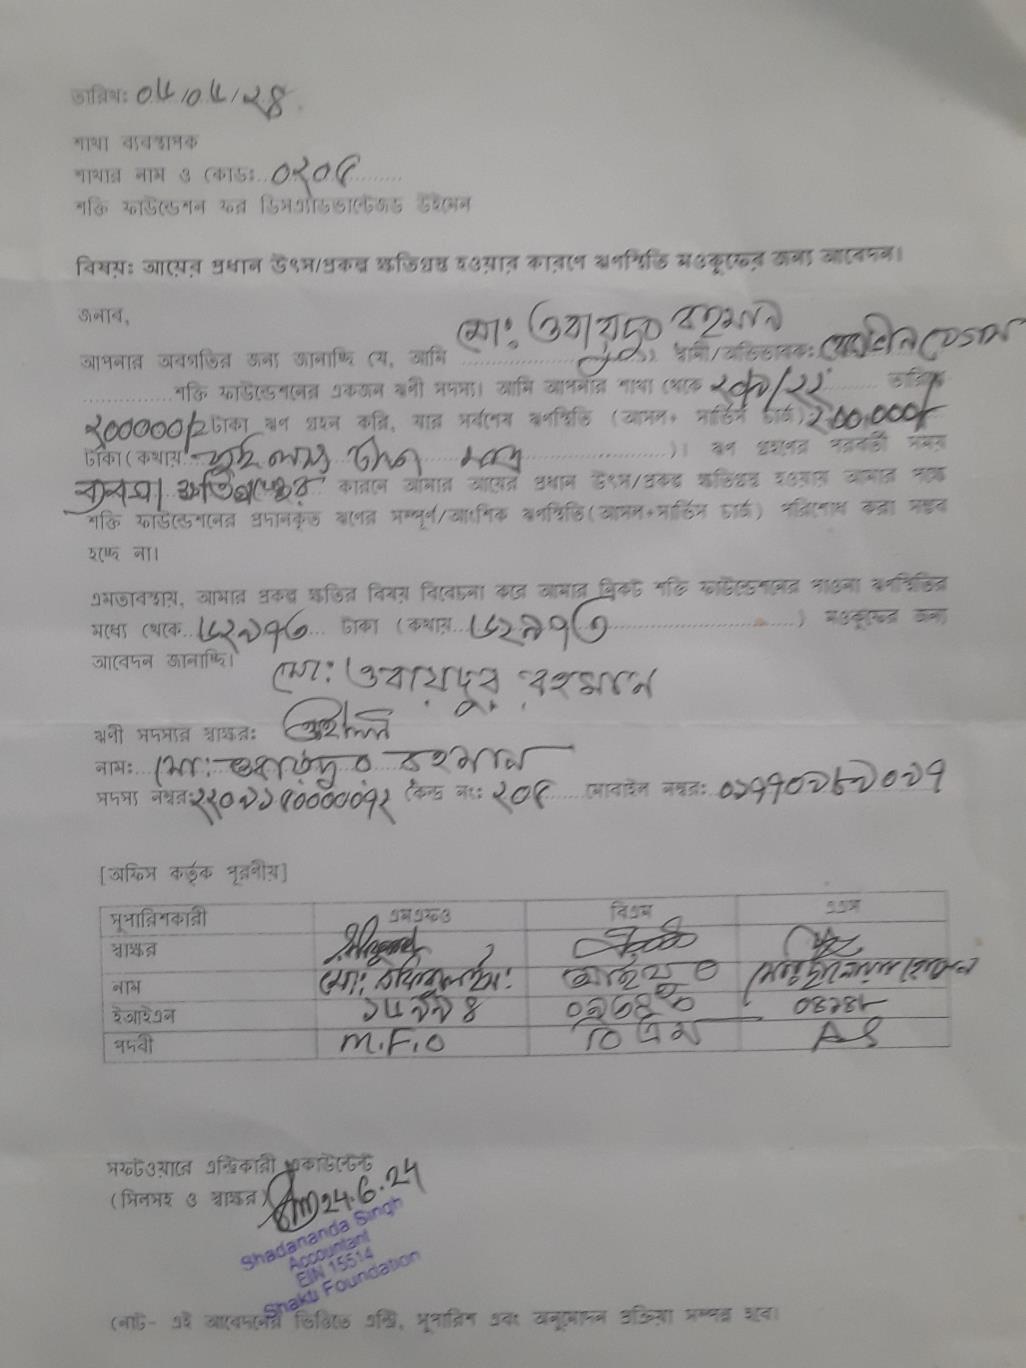 তারিখ: ০৬/০৬/২৪
শাখা ব্যবস্থাপক
শাখার নাম ও কোড: ০২০৫
শক্তি ফাউন্ডেশন ফর ডিসএ্যাডভান্টেজড উইমেন
বিষয়: আয়ের প্রধান উৎস/প্রকল্প ক্ষতিগ্রস্ত হওয়ার কারণে ঋণস্থিতি মওকুফের জন্য আবেদন।
জনাব,
মো: ওবায়দুর রহমান
আপনার অবগতির জন্য জানাচ্ছি যে, আমি স্বামী/অভিভাবক: বেগম
শক্তি ফাউন্ডেশনের একজন ঋণী সদস্য। আমি আপনার শাখা থেকে তারিখ
২০০০০০/= টাকা ঋণ গ্রহন করি, যার সর্বশেষ ঋণস্থিতি (আসল+ সার্ভিস চার্জ) ২০০,০০০/
টাকা (কথায় দুই লাখ টাকা মাত্র)। ঋণ গ্রহণের পরবর্তী সময়
ব্যবসা কারনে আমার আয়ের প্রধান উৎস/প্রকল্প ক্ষতিগ্রস্ত হওয়ায় আমার পক্ষে
শক্তি ফাউন্ডেশনের প্রদানকৃত ঋণের সম্পূর্ণ/আংশিক ঋণস্থিতি (আসল+সার্ভিস চার্জ) পরিশোধ করা সম্ভব
হচ্ছে না।
এমতাবস্থায়, আমার প্রকল্প ক্ষতির বিষয় বিবেচনা করে আমার নিকট শক্তি ফাউন্ডেশনের পাওনা ঋণস্থিতির
মধ্যে থেকে ৬২৯৭৩ টাকা (কথায় ৬২৯৭৩) মওকুফের জন্য
আবেদন জানাচ্ছি।
মো: ওবায়দুর রহমান
ঋণী সদস্যর স্বাক্ষর:
নাম: মো: ওবায়দুর রহমান
সদস্য নম্বর: কেন্দ্র নং: ২০৫ মোবাইল নম্বর:
[অফিস কর্তৃক পূরণীয়]
সুপারিশকারী এমএফও বিএম এএস
স্বাক্ষর
নাম
ইআইএন
পদবী M.F.O বিএম AS
সফটওয়ারে এন্ট্রিকারী একাউন্টেন্ট
(সিলসহ ও স্বাক্ষর) 24.6.24
Shadananda Singh
Accountant
EIN 15514
Shakti Foundation
নোট- এই আবেদনের ভিত্তিতে এন্ট্রি, সুপারিশ এবং অনুমোদন প্রক্রিয়া সম্পন্ন হবে।